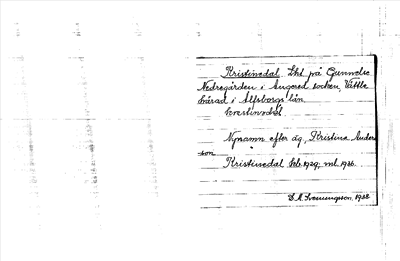 Kristinedal Lht på Gunnilse
Nedregården i Angered socken, Vättle
härad i Älfsborgs län.
Nynamn efter äg, Kristina Anders
son
Kristinedal Jeb. 1929, ml. 1936.
D. A. Svenungsson, 1938